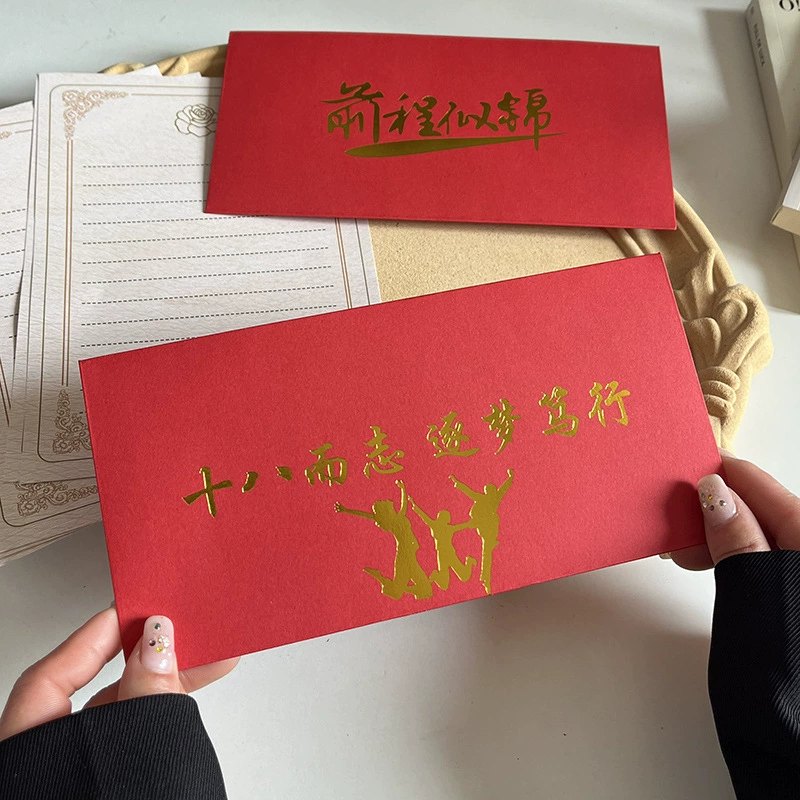 前程似锦
十八而志 逐梦 笃行